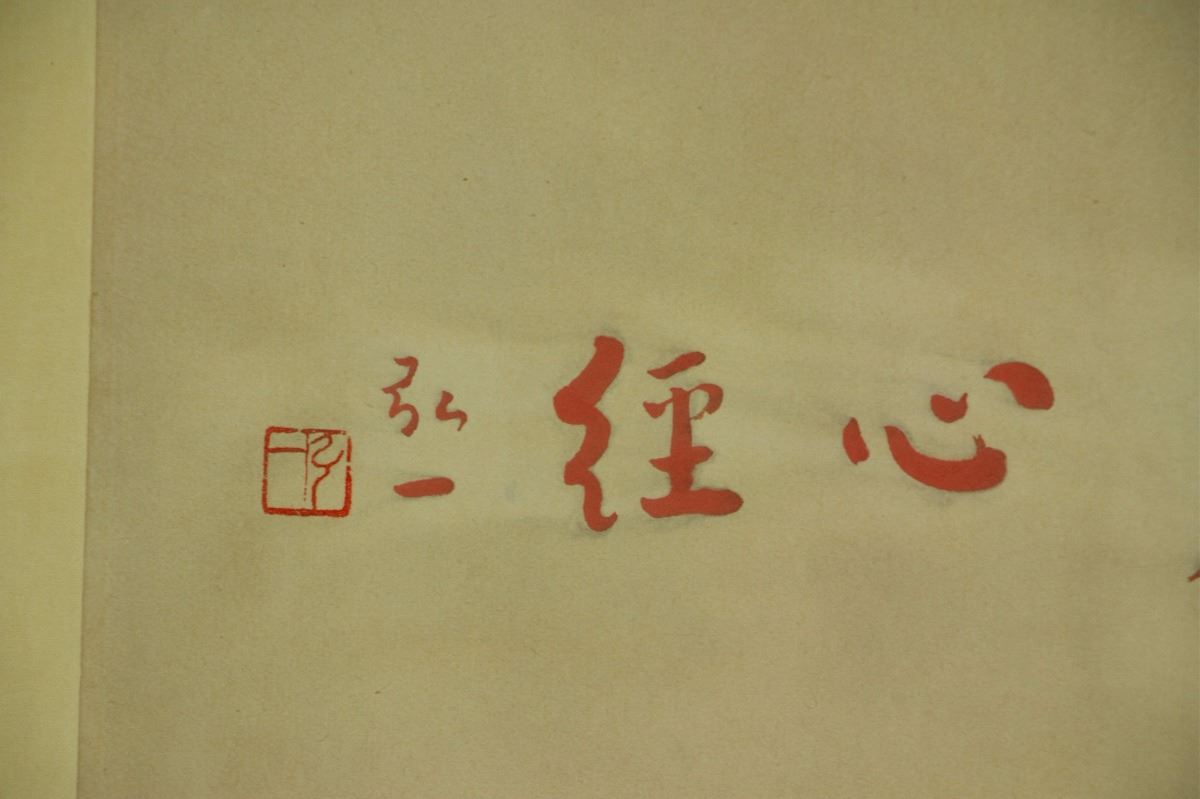 心經
弘一
弘一